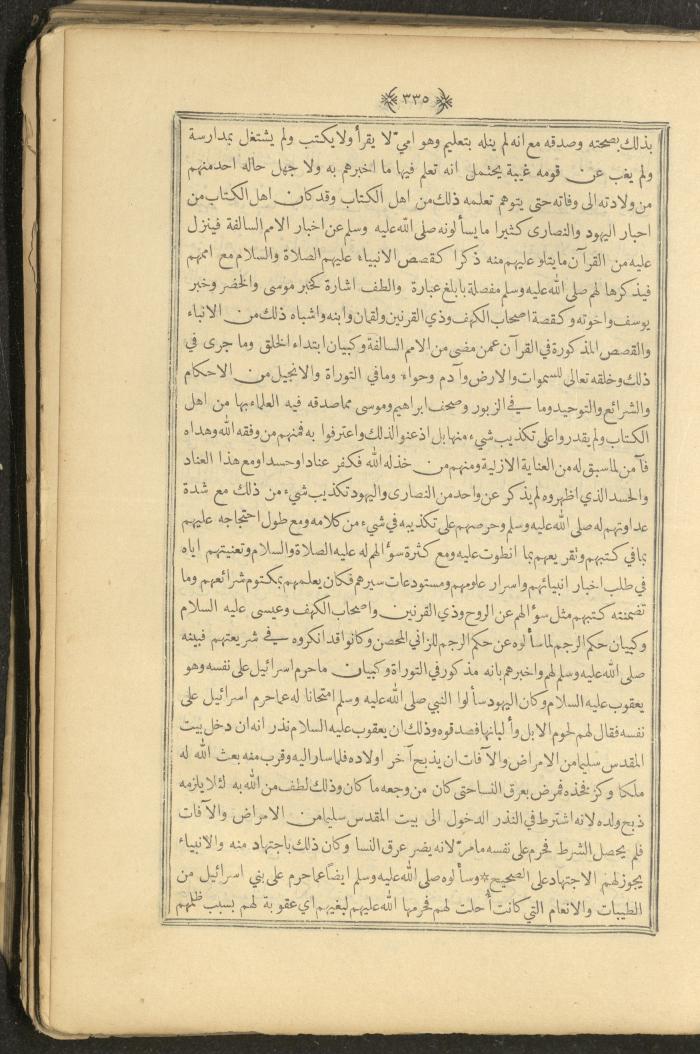 ٣٣٥
بذلك بصحته وصدقه مع انه لم ينله بتعليم وهو اميّ لا يقرأ ولا يكتب ولم يشتغل بمدارسة
ولم يغب عن قومه غيبة يحتمل انه تعلم فيها ما اخبرهم به ولا جهل حاله احد منهم
من ولادته الى وفاته حتى يتوهم تعلمه ذلك من اهل الكتاب وقد كان اهل الكتاب من
احبار اليهود والنصارى كثيرا ما يسألونه صلى الله عليه وسلم عن اخبار الامم السالفة فينزل
عليه من القرآن ما يتلو عليهم منه ذكرا كقصص الانبياء عليهم الصلاة والسلام مع اممهم
فيذكرها لهم صلى الله عليه وسلم مفصلة بابلغ عبارة والطف اشارة كخبر موسى والخضر وخبر
يوسف واخوته وكقصة اصحاب الكهف وذي القرنين ولقمان وابنه واشباه ذلك من الانباء
والقصص المذكورة في القرآن عمن مضى من الامم السالفة وكبيان ابتداء الخلق وما جرى في
ذلك وخلقه تعالى للسموات والارض وآدم وحواء وما في التوراة والانجيل من الاحكام
والشرائع والتوحيد وما في الزبور وصحف ابراهيم وموسى مما صدقه فيه العلماء بها من اهل
الكتاب ولم يقدروا على تكذيب شيء منها بل اذعنوا لذلك واعترفوا به فمنهم من وفقه الله وهداه
فآمن لما سبق له من العناية الازلية ومنهم من خذله الله فكفر عنادا وحسدا ومع هذا العناد
والحسد الذي اظهروه لم يذكر عن واحد من النصارى واليهود تكذيب شيء من ذلك مع شدة
عداوتهم له صلى الله عليه وسلم وحرصهم على تكذيبه في شيء من كلامه ومع طول احتجاجه عليهم
بما في كتبهم وتقريعهم بما انطوت عليه ومع كثرة سؤالهم له عليه الصلاة والسلام وتعنيتهم اياه
في طلب اخبار انبيائهم واسرار علومهم ومستودعات سيرهم فكان يعلمهم بمكتوم شرائعهم وما
تضمنته كتبهم مثل سؤالهم عن الروح وذي القرنين واصحاب الكهف وعيسى عليه السلام
وكبيان حكم الرجم لما سألوه عن حكم الرجم للزاني المحصن وكانوا قد انكروه في شريعتهم فبينه
صلى الله عليه وسلم لهم واخبرهم بانه مذكور في التوراة وكبيان ما حرم اسرائيل على نفسه وهو
يعقوب عليه السلام وكان اليهود سألوا النبي صلى الله عليه وسلم امتحانا له عما حرم اسرائيل على
نفسه فقال لهم لحوم الابل وألبانها فصدقوه وذلك ان يعقوب عليه السلام نذر انه ان دخل بيت
المقدس سليما من الامراض والآفات ان يذبح آخر اولاده فلما سار اليه وقرب منه بعث الله له
ملكا وكز فخذه فمرض بعرق النسا حتى كان من وجعه ما كان وذلك لطف من الله به لئلا يلزمه
ذبح ولده لانه اشترط في النذر الدخول الى بيت المقدس سليما من الامراض والآفات
فلم يحصل الشرط فحرم على نفسه ما مرّ لانه يضر عرق النسا وكان ذلك باجتهاد منه والانبياء
يجوز لهم الاجتهاد على الصحيح * وسألوه صلى الله عليه وسلم ايضا عما حرم على بني اسرائيل من
الطيبات والانعام التي كانت أُحلت لهم فحرمها الله عليهم لبغيهم اي عقوبة لهم بسبب ظلمهم